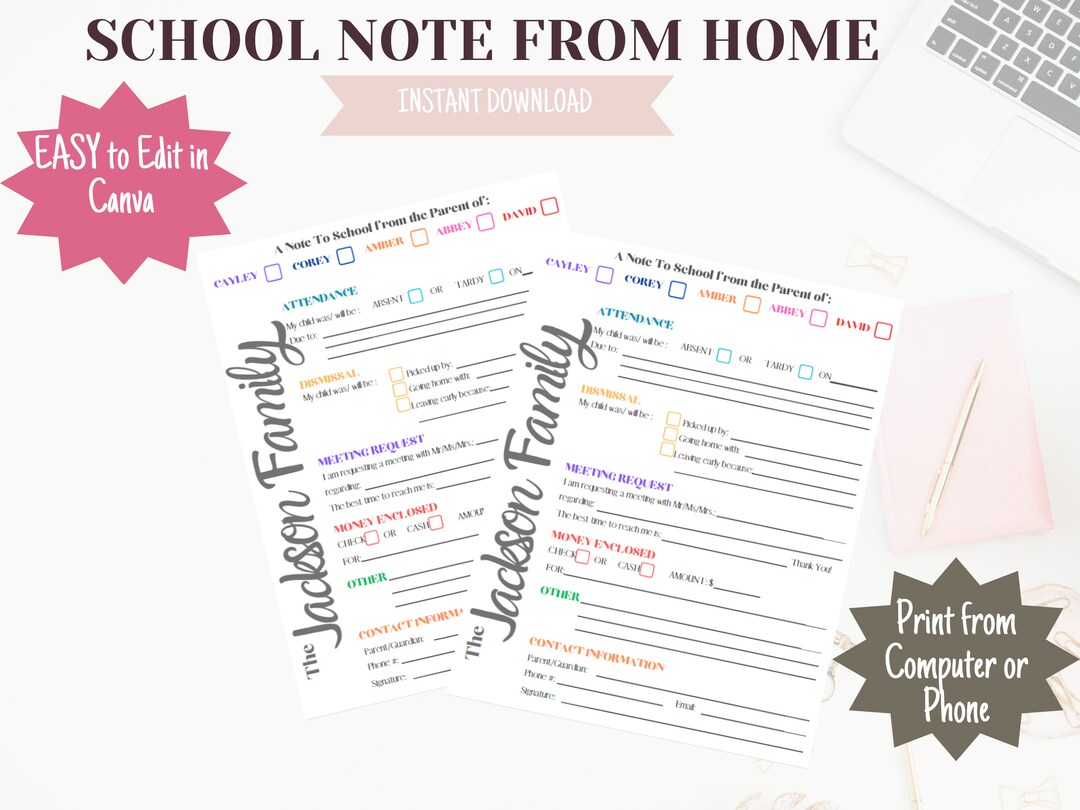 SCHOOL NOTE FROM HOME
INSTANT DOWNLOAD
EASY to Edit in
Canva
A Note To School From the Parent of':
CAYLEY COREY AMBER ABBEY DAVID
ATTENDANCE
My child was/ will be : ABSENT OR TARDY ON
Due to:
DISMISSAL
My child was/ will be :
Picked up by:
Going home with:
Leaving early because:
MEETING REQUEST
I am requesting a meeting with Mr/Ms/Mrs.:
regarding:
The best time to reach me is:
MONEY ENCLOSED
CHECK OR CASH AMOU
FOR:
OTHER
CONTACT INFORMA
Parent/Guardian:
Phone #:
Signature:
The Jackson Family
A Note To School From the Parent of':
CAYLEY COREY AMBER ABBEY DAVID
ATTENDANCE
My child was/ will be : ABSENT OR TARDY ON
Due to:
DISMISSAL
My child was/ will be :
Picked up by:
Going home with:
Leaving early because:
MEETING REQUEST
I am requesting a meeting with Mr/Ms/Mrs.:
regarding:
The best time to reach me is:
Thank You!
MONEY ENCLOSED
CHECK OR CASH AMOUNT: $
FOR:
OTHER
CONTACT INFORMATION
Parent/Guardian:
Phone #: Email:
Signature:
The Jackson Family
Print from
Computer or
Phone